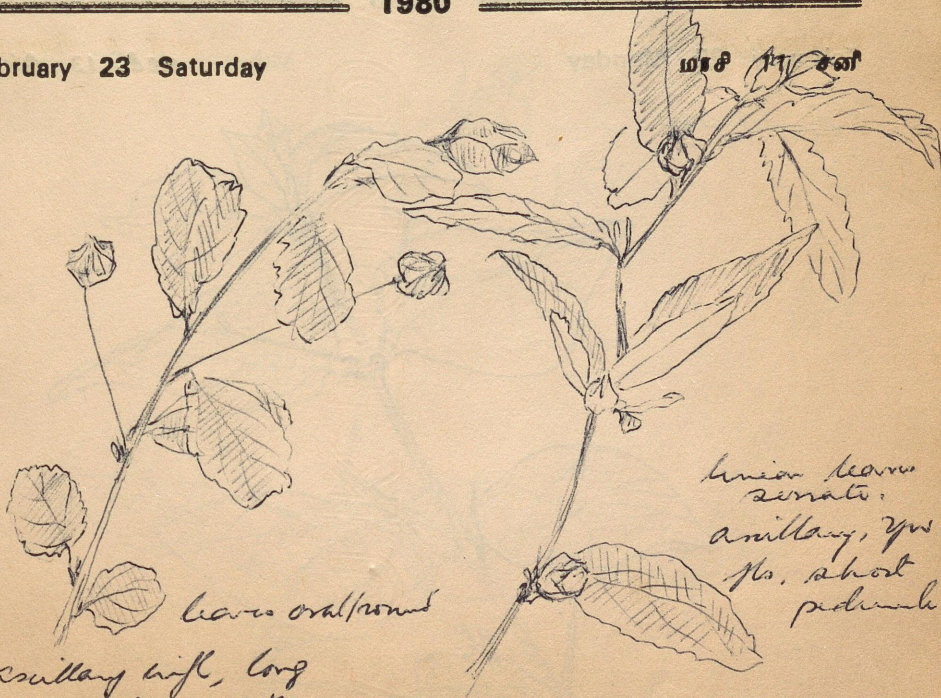 1980
bruary 23 Saturday
மாசி 11 சனி
linear leaves
serrate.
axillary,
fls, short
peduncle
leaves oval/round
axillary infl, long